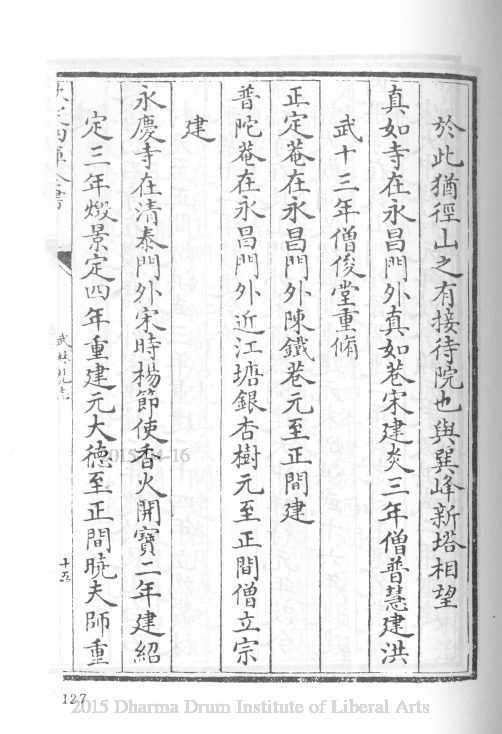 於此猶徑山之有接待院也與巽峰新塔相望
真如寺在永昌門外真如菴宋建炎三年僧普慧建洪
武十三年僧俊堂重脩
正定菴在永昌門外陳鐵巷元至正間建
普陀菴在永昌門外近江塘銀杏樹元至正間僧立宗
建
永慶寺在清泰門外宋時楊節使香火開寶二年建紹
定三年燬景定四年重建元大德至正間曉夫師重
武林
十五
127
2015 Dharma Drum Institute of Liberal Arts